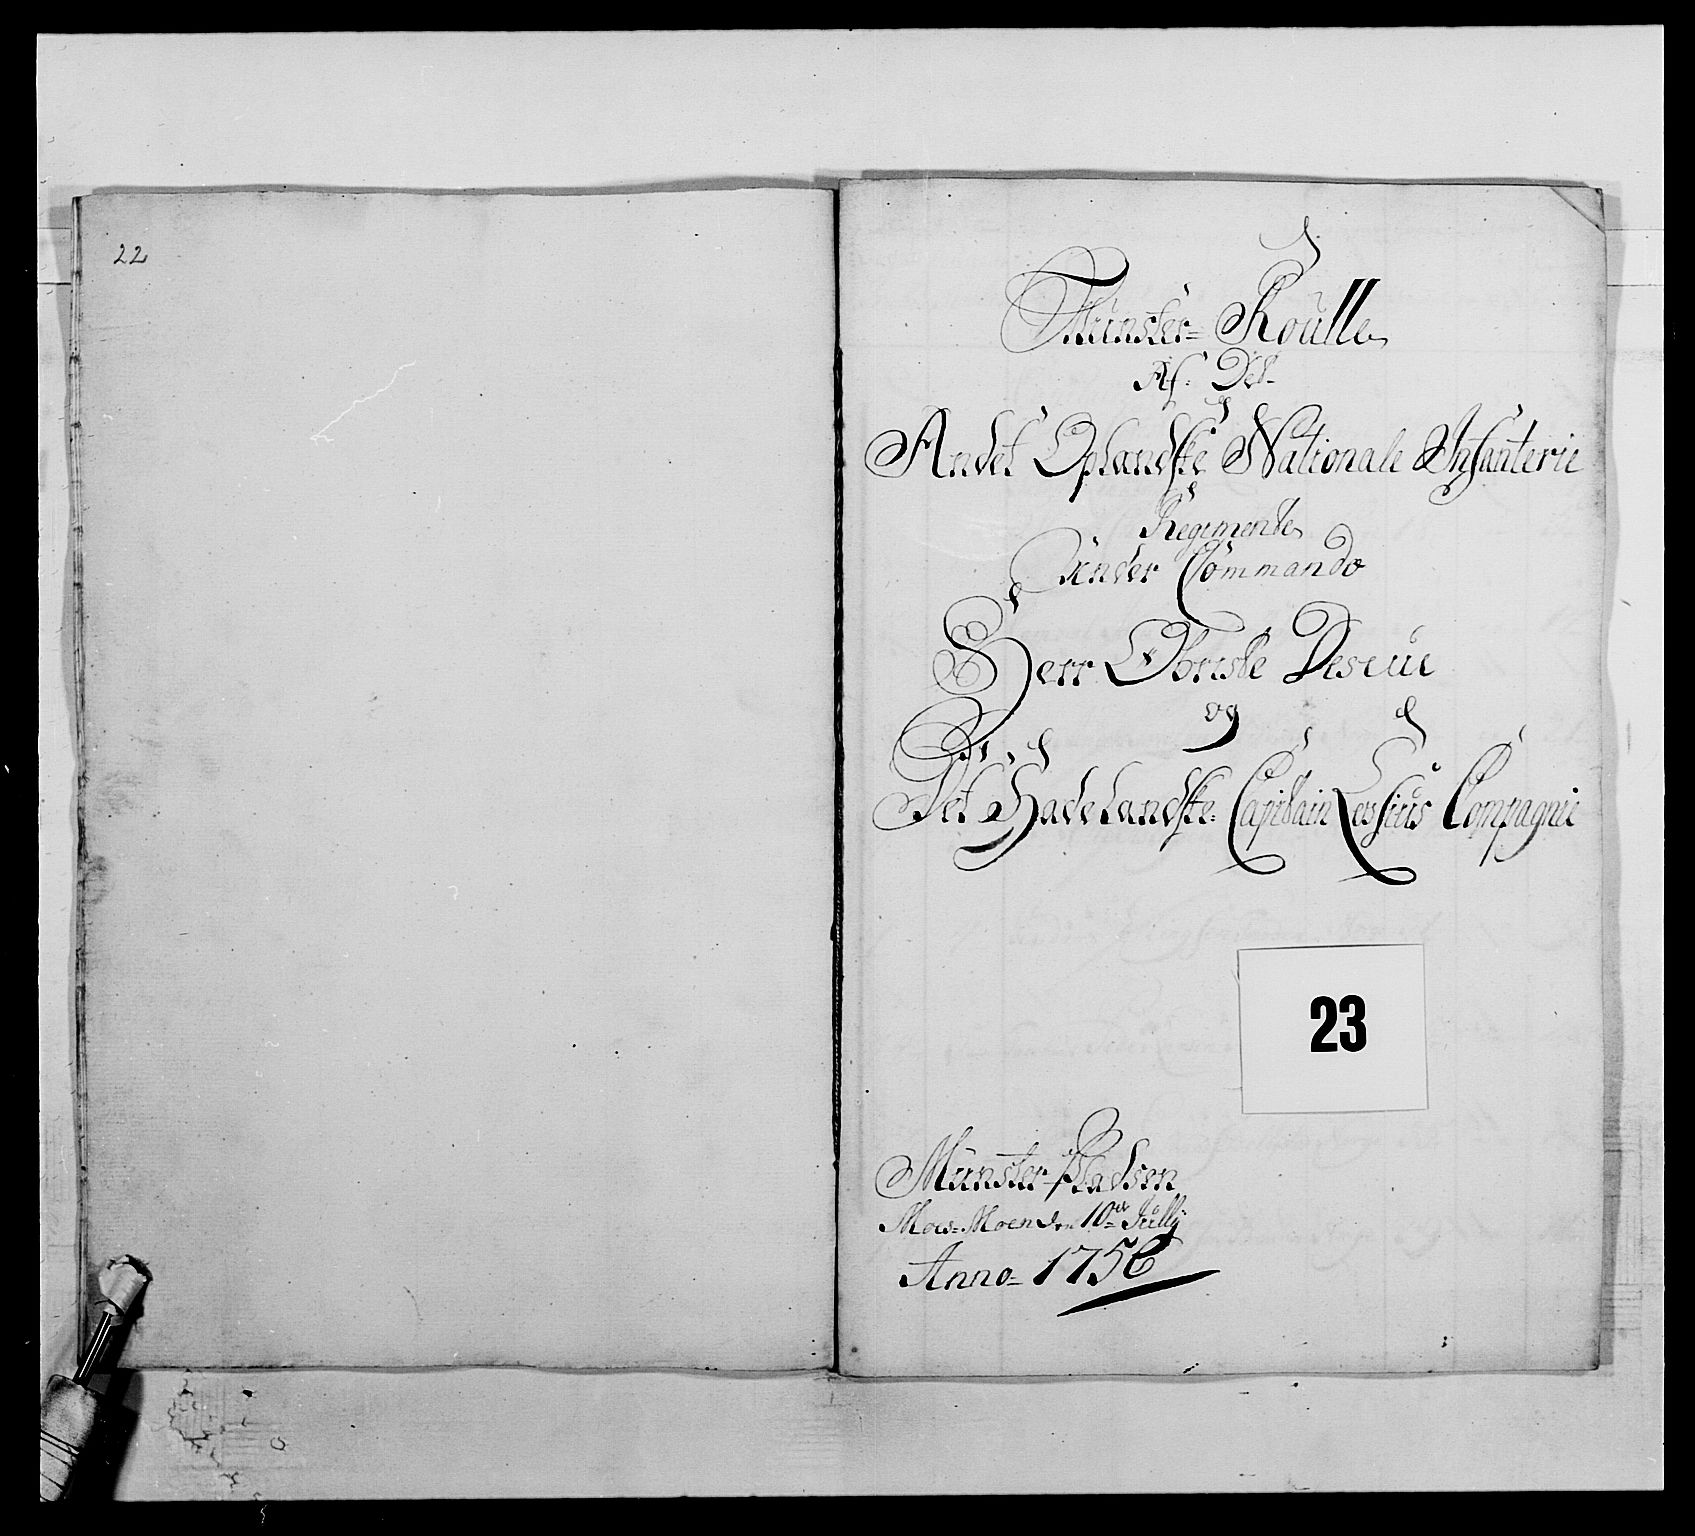 22
Münster= Roulle
Af Det
Andet Oplandske Nationale Infanterie
Regimente
Under Commando
Herr Obriste Descue
og
Det Hadelandske Capitain Lessius Compagnie
23
Münster-Pladsen
Moes-Moen den 10de Jülly
Anno= 1756